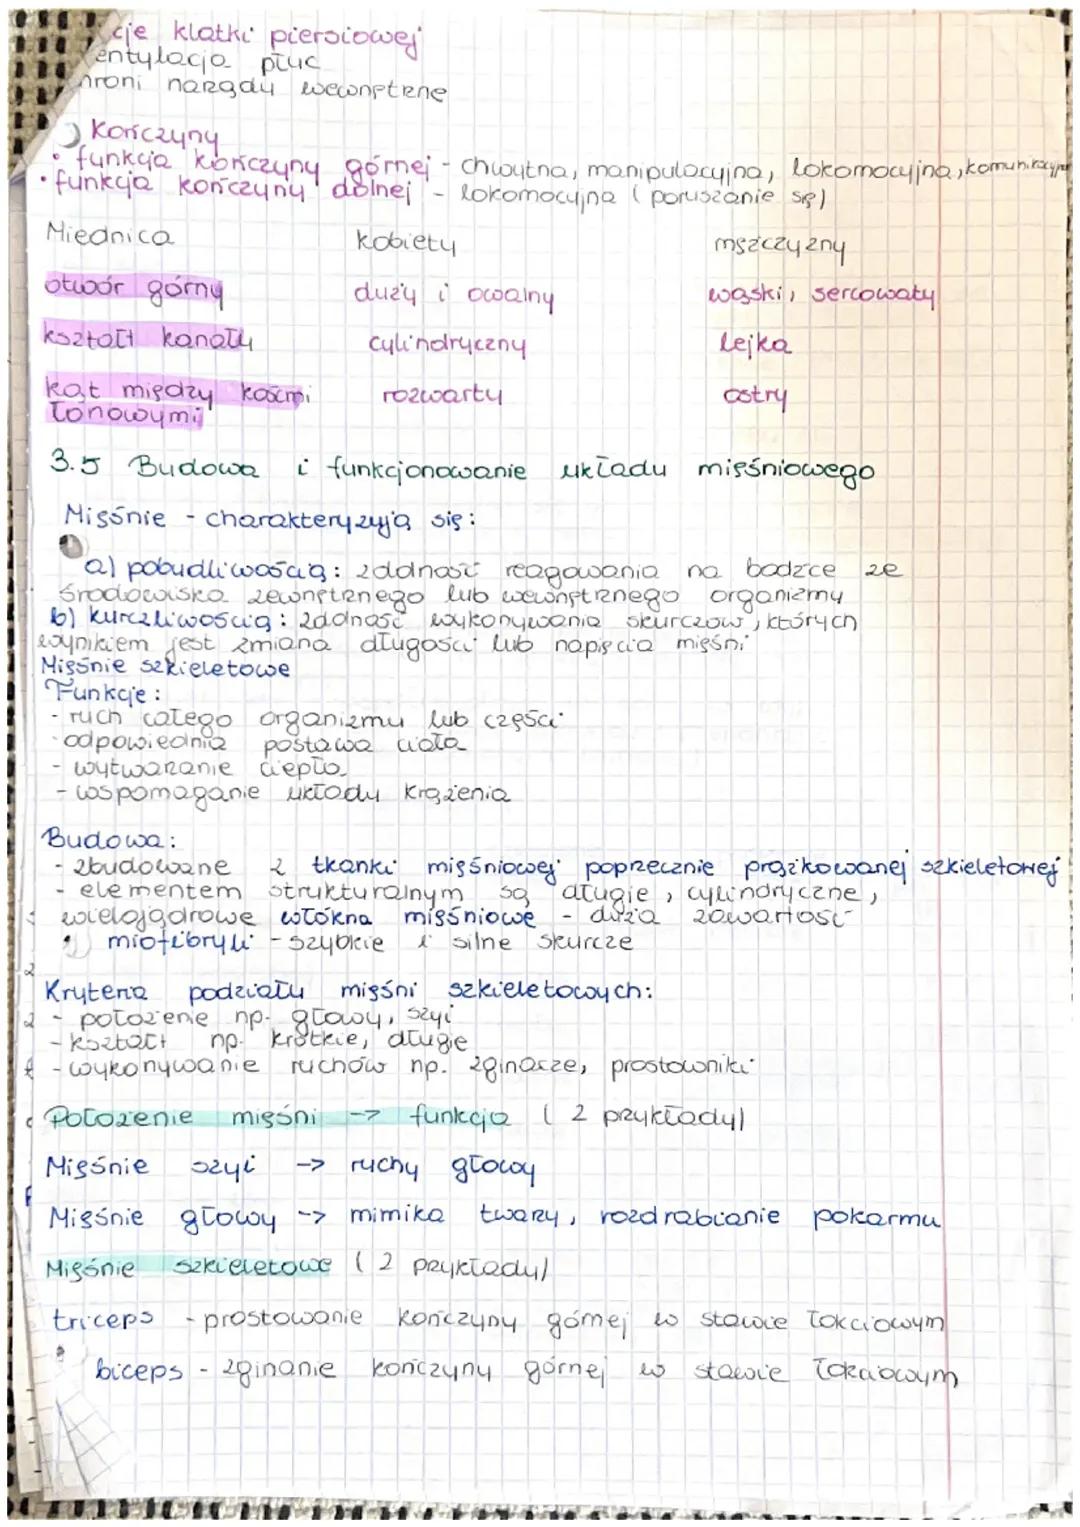 cje klatki piersiowej
entylacja płuc
hroni narządy wewnętrzne
Kończyny
• funkcja kończyny górnej - chwytna, manipulacyjna, lokomocyjna, komunikacyjna
• funkcja kończyny dolnej - lokomocyjna (poruszanie się)
Miednica kobiety mężczyzny
otwór górny duży i owalny wąski, sercowaty
kształt kanału cylindryczny lejka
kąt między kośćmi rozwarty ostry
łonowymi
3.5 Budowa i funkcjonowanie układu mięśniowego
Mięśnie - charakteryzują się:
a) pobudliwością: zdolność reagowania na bodźce ze
środowiska zewnętrznego lub wewnętrznego organizmu
b) kurczliwością: zdolność wykonywania skurczów, których
wynikiem jest zmiana długości lub napięcia mięśni
Mięśnie szkieletowe
Funkcje:
- ruch całego organizmu lub części
- odpowiednia postawa ciała
- wytwarzanie ciepła
- wspomaganie układu krążenia
Budowa:
- zbudowane z tkanki mięśniowej poprzecznie prążkowanej szkieletowej
- elementem strukturalnym są długie, cylindryczne,
wielojądrowe włókna mięśniowe - duża zawartość
miofibryli - szybkie i silne skurcze
Kryteria podziału mięśni szkieletowych:
- położenie np. głowy, szyi
- kształt np. krótkie, długie
- wykonywanie ruchów np. zginacze, prostowniki
Położenie mięśni -> funkcja (2 przykłady)
Mięśnie szyi -> ruchy głowy
Mięśnie głowy -> mimika twarzy, rozdrabianie pokarmu
Mięśnie szkieletowe (2 przykłady)
triceps - prostowanie kończyny górnej w stawie łokciowym
biceps - zginanie kończyny górnej w stawie łokciowym